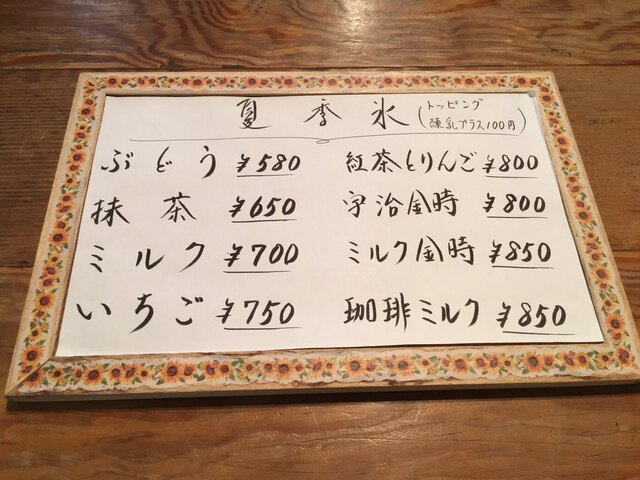 夏季氷 (トッピング
練乳プラス100円)
ぶどう ¥580
抹茶 ¥650
ミルク ¥700
いちご ¥750
紅茶とりんご ¥800
宇治金時 ¥800
ミルク金時 ¥850
珈琲ミルク ¥850